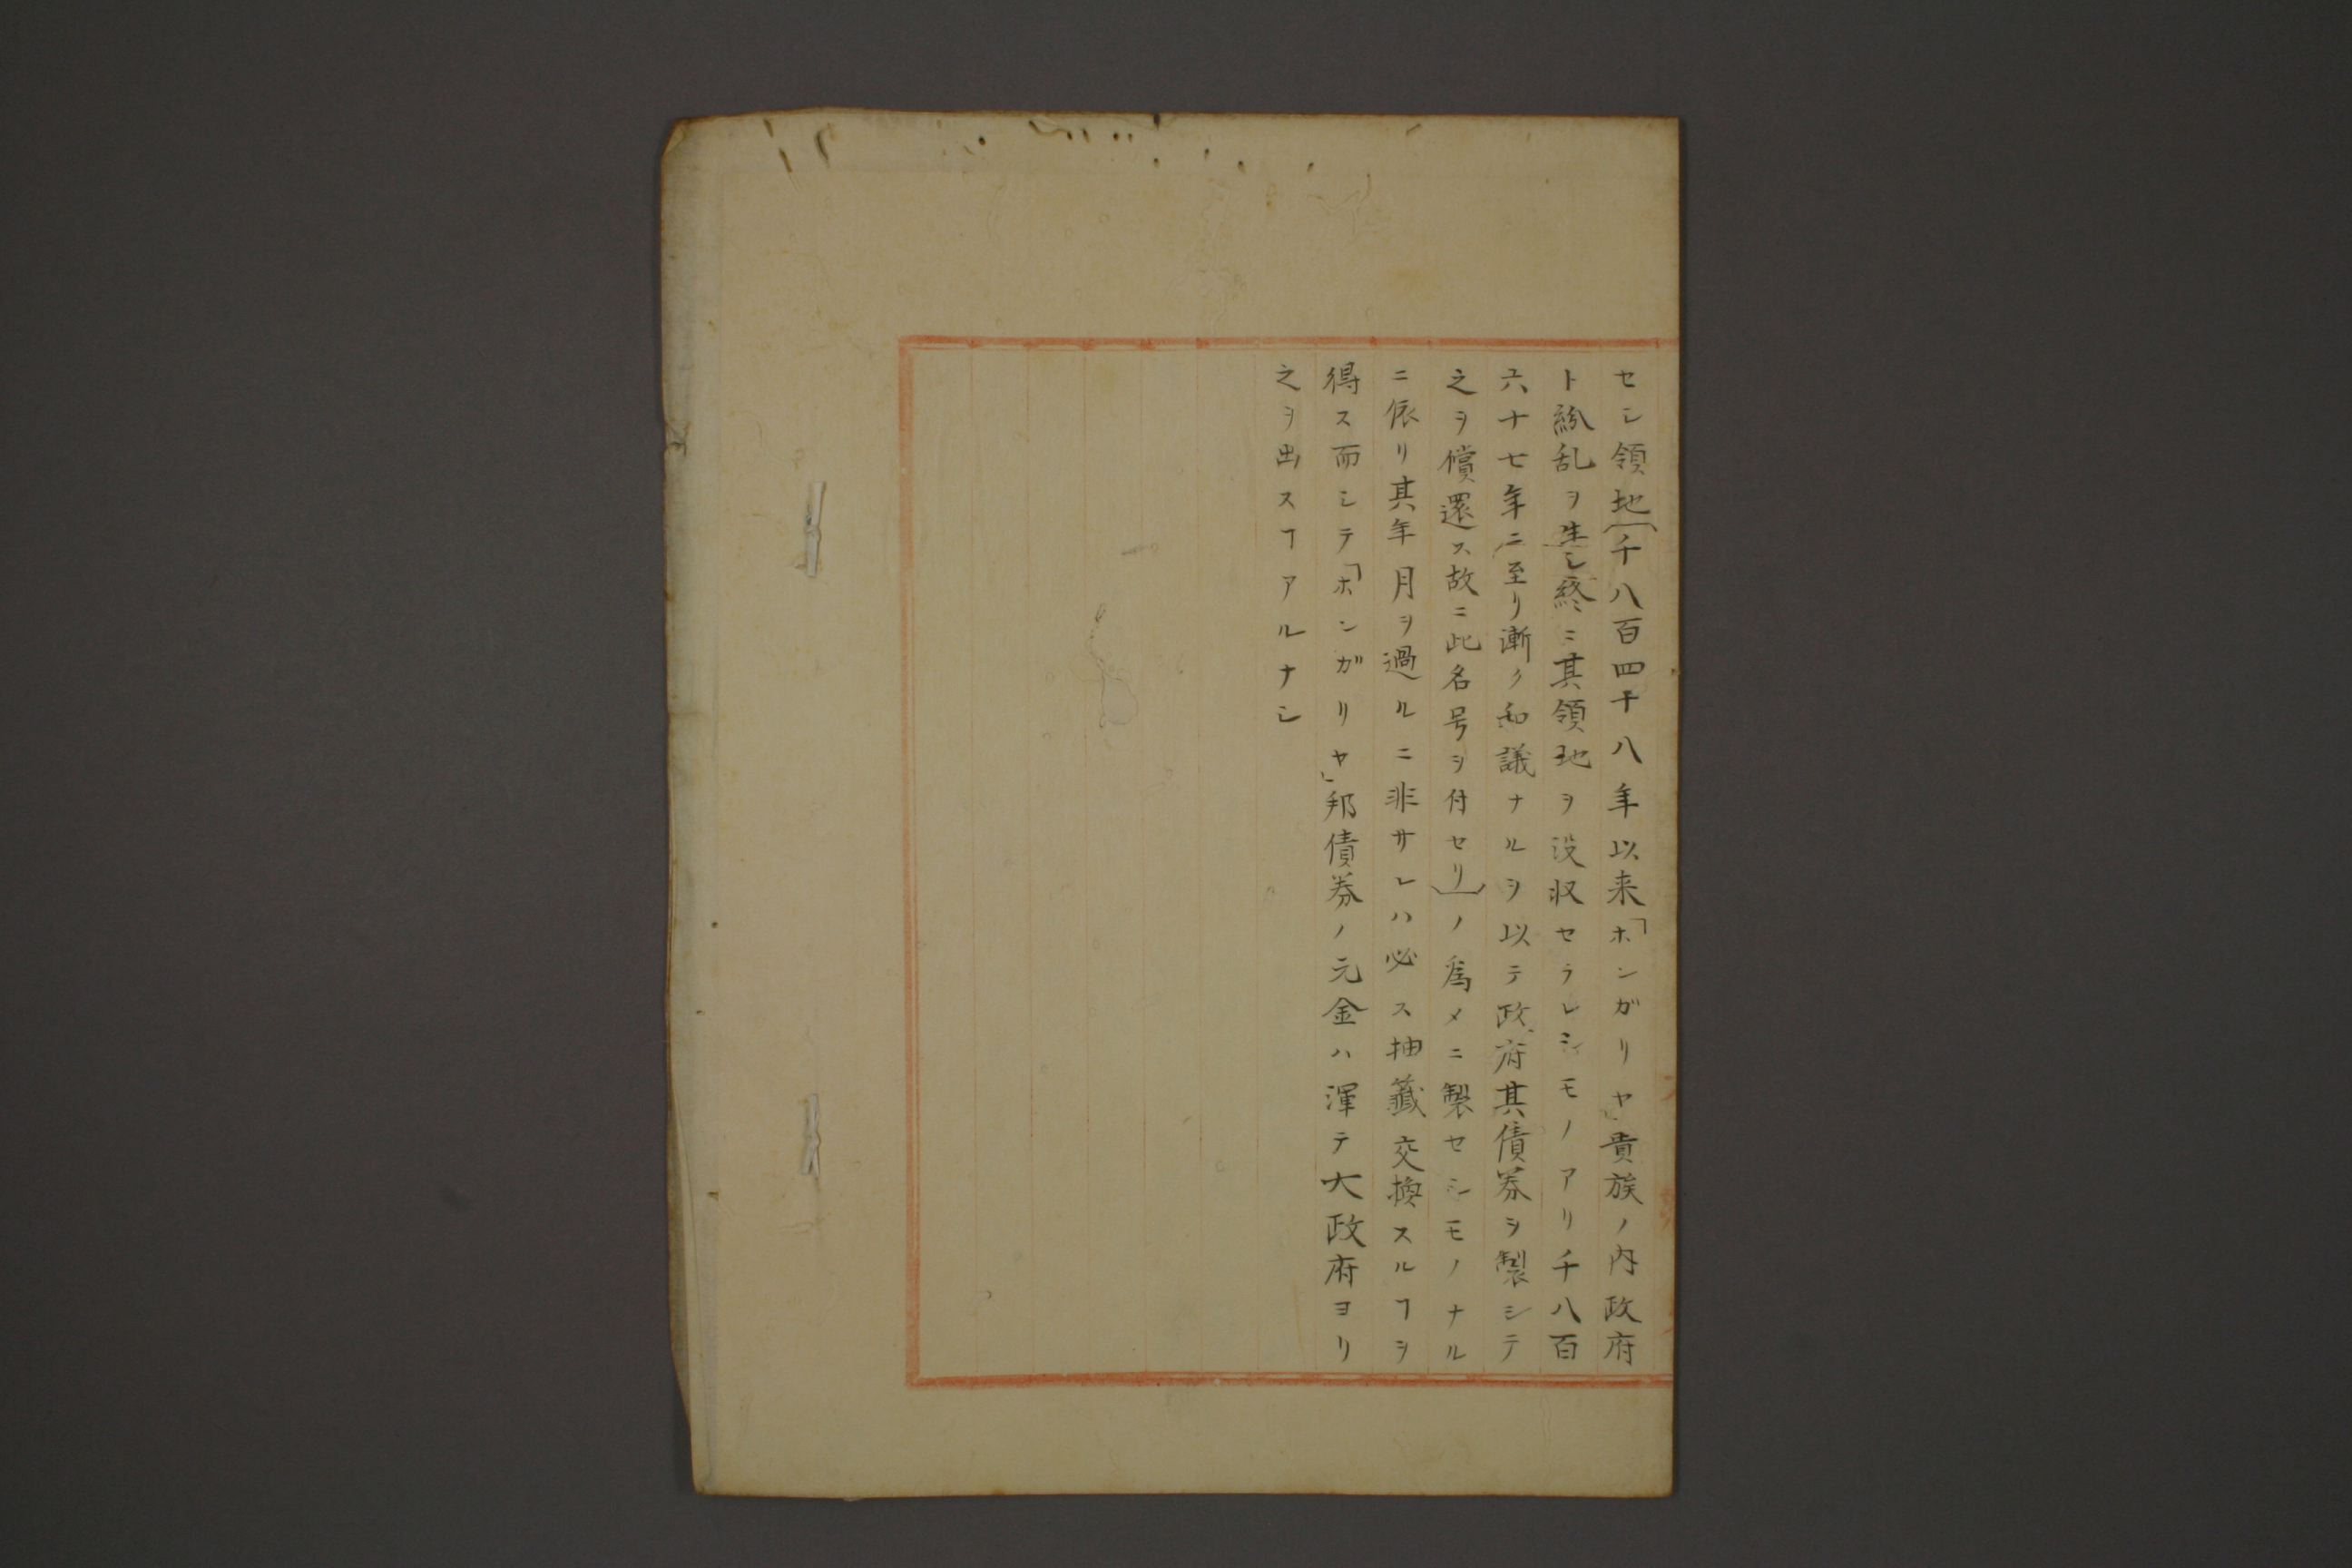 セシ領地(千八百四十八年以来「ホンガリヤ」貴族ノ内政府
ト紛乱ヲ生シ終ニ其領地ヲ没収セラレシモノアリ千八百
六十七年ニ至リ漸ク和議ナルヲ以テ政府其債券ヲ製シテ
之ヲ償還ス故ニ此名号ヲ付セリ)ノ為メニ製セシモノナル
ニ依リ其年月ヲ過ルニ非サレハ必ス抽籤交換スルヿヲ
得ス而シテ「ホンガリヤ」邦債券ノ元金ハ渾テ大政府ヨリ
之ヲ出スヿアルナシ